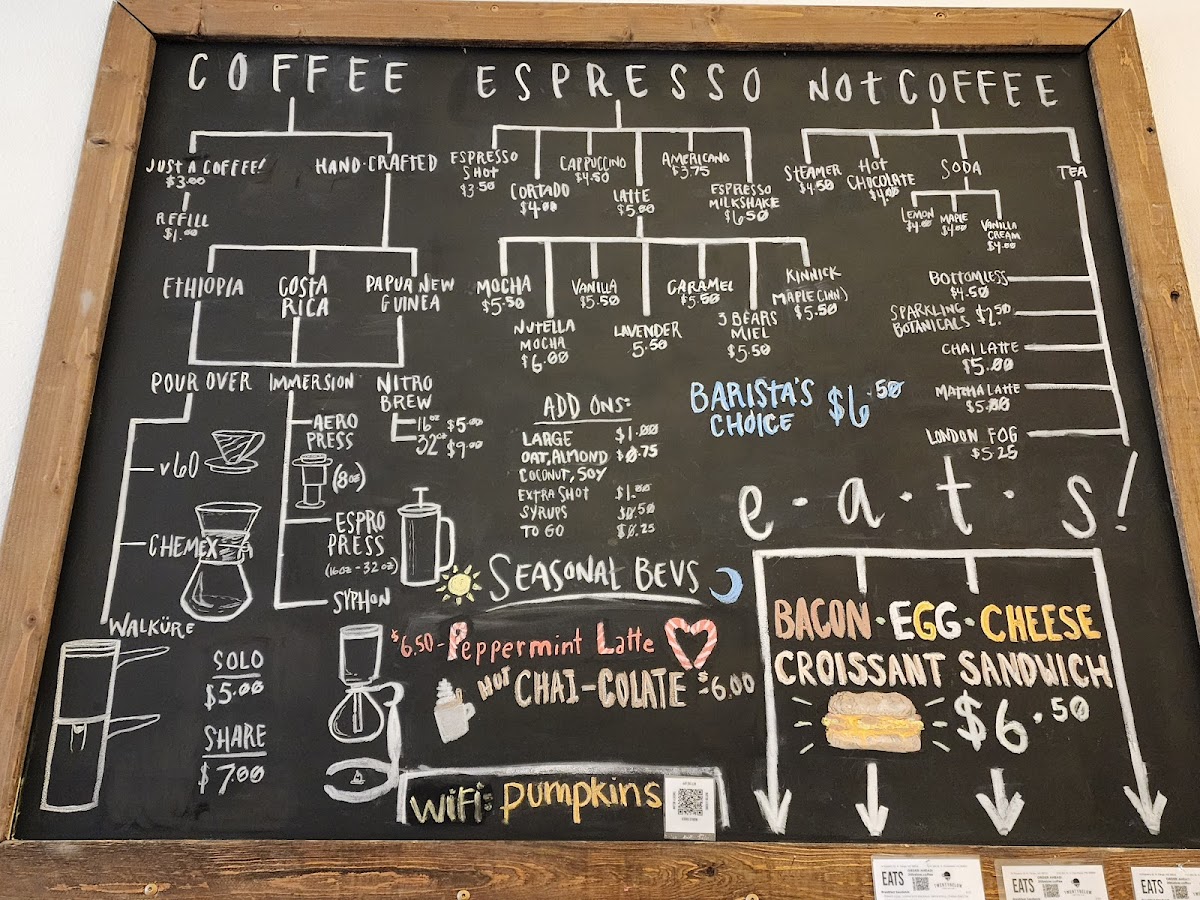 COFFEE
JUST A COFFEE!
$3.00
REFILL
$1.00
HAND-CRAFTED
ETHIOPIA
COSTA
RICA
PAPUA NEW
GUINEA
POUR OVER
V60
CHEMEX
WALKÜRE
IMMERSION
AERO
PRESS
(8oz)
ESPRO
PRESS
(16oz - 32oz)
SYPHON
NITRO
BREW
16oz $5.00
32oz $9.00
SOLO
$5.00
SHARE
$7.00
ESPRESSO
ESPRESSO
SHOT
$3.50
CORTADO
$4.00
CAPPUCCINO
$4.50
LATTE
$5.00
AMERICANO
$3.75
ESPRESSO
MILKSHAKE
$6.50
MOCHA
$5.50
NUTELLA
MOCHA
$6.00
VANILLA
$5.50
LAVENDER
5.50
CARAMEL
$5.50
3 BEARS
MIEL
$5.50
KINNICK
MAPLE CINN.)
$5.50
ADD ONS:
LARGE $1.00
OAT, ALMOND $0.75
COCONUT, SOY
EXTRA SHOT $1.00
SYRUPS $0.50
TO GO $0.25
BARISTA'S
CHOICE $6.50
SEASONAL BEVS
$6.50-Peppermint Latte
HOT CHAI-COLATE -$6.00
WiFi: pumpkins
NOt COFFEE
STEAMER
$4.50
HOT
CHOCOLATE
$4.00
SODA
LEMON
$4.00
MAPLE
$4.00
VANILLA
CREAM
$4.00
TEA
BOTTOMLESS
$4.50
SPARKLING
BOTANICALS $2.50
CHAI LATTE
$5.00
MATCHA LATTE
$5.00
LONDON FOG
$5.25
e.a.t.s!
BACON·EGG·CHEESE
CROISSANT SANDWICH
$6.50
EATS
EATS
EATS